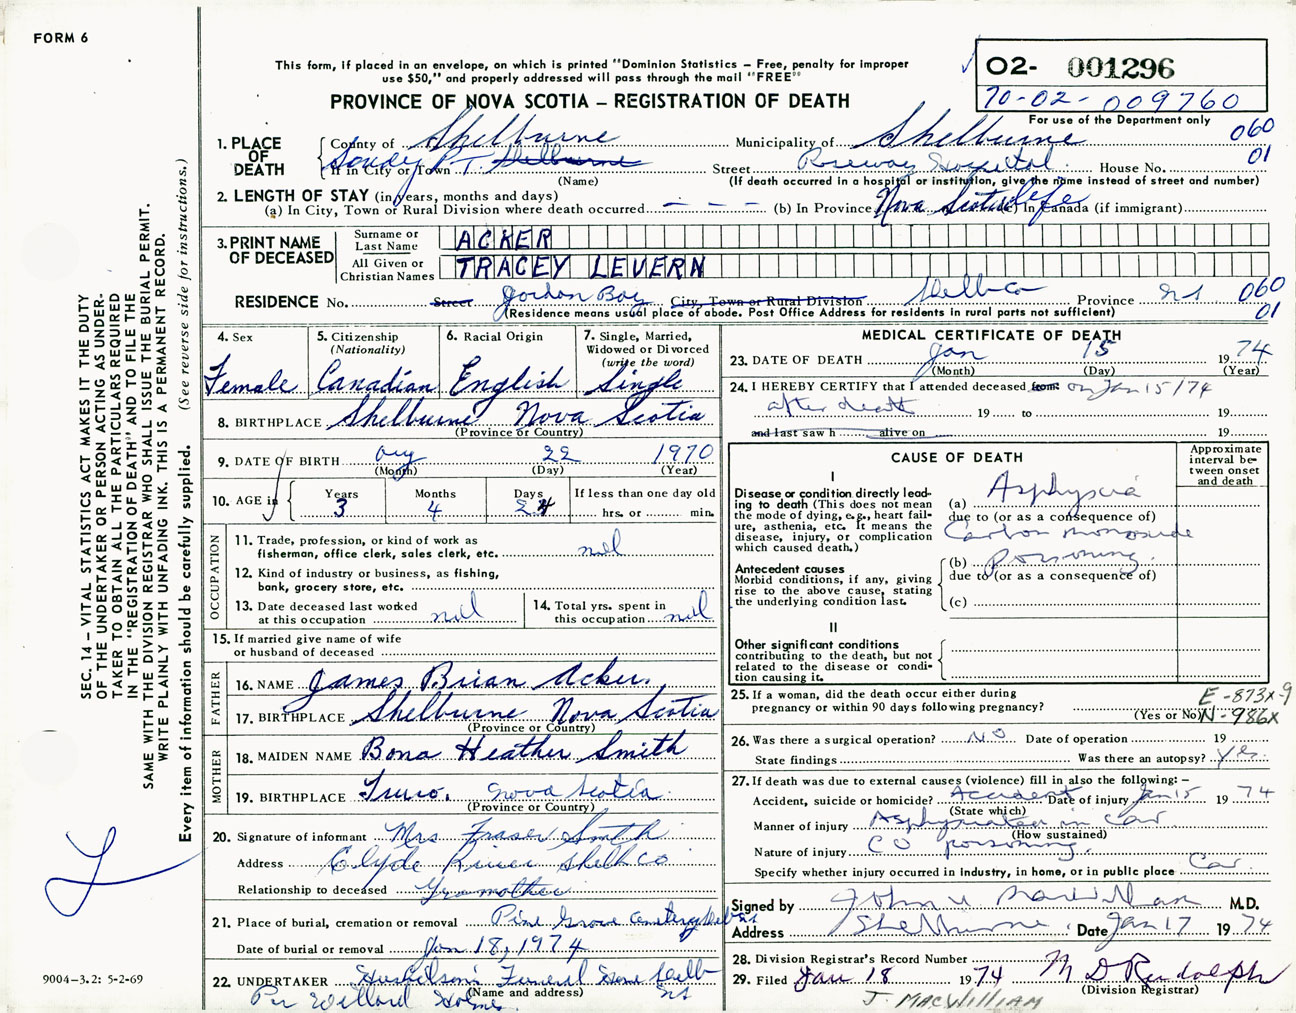 FORM 6
This form, if placed in an envelope, on which is printed "Dominion Statistics – Free, penalty for improper
use $50," and properly addressed will pass through the mail "FREE"
PROVINCE OF NOVA SCOTIA – REGISTRATION OF DEATH
02- 001296
70-02-009760
For use of the Department only
1. PLACE OF DEATH
County of Shelburne Municipality of Shelburne 060
If in City or Town Sandy PT. Shelburne (Name) Street Roseway Hospital House No. 01
(If death occurred in a hospital or institution, give the name instead of street and number)
2. LENGTH OF STAY (in years, months and days)
(a) In City, Town or Rural Division where death occurred — — — (b) In Province Nova Scotia life (c) In Canada (if immigrant)
3. PRINT NAME OF DECEASED
Surname or Last Name ACKER
All Given or Christian Names TRACEY LEVERN
RESIDENCE No. Street Jordan Bay City, Town or Rural Division Shelb Co Province NS 060
(Residence means usual place of abode. Post Office Address for residents in rural parts not sufficient) 01
4. Sex Female
5. Citizenship (Nationality) Canadian
6. Racial Origin English
7. Single, Married, Widowed or Divorced (write the word) Single
8. BIRTHPLACE Shelburne Nova Scotia
(Province or Country)
9. DATE OF BIRTH Aug 22 1970
(Month) (Day) (Year)
10. AGE in Years 3 Months 4 Days 24 If less than one day old hrs. or min.
OCCUPATION
11. Trade, profession, or kind of work as
fisherman, office clerk, sales clerk, etc. nil
12. Kind of industry or business, as fishing,
bank, grocery store, etc.
13. Date deceased last worked
at this occupation nil
14. Total yrs. spent in
this occupation nil
15. If married give name of wife
or husband of deceased
FATHER
16. NAME James Brian Acker.
17. BIRTHPLACE Shelburne Nova Scotia
(Province or Country)
MOTHER
18. MAIDEN NAME Bona Heather Smith
19. BIRTHPLACE Truro. Nova Scotia
(Province or Country)
20. Signature of informant Mrs Fraser Smith
Address Clyde River Shelb Co
Relationship to deceased Grandmother
21. Place of burial, cremation or removal Pine Grove Cemetery
Date of burial or removal Jan 18, 1974
22. UNDERTAKER Funeral Home Shelb NS
(Name and address)
Per Willard Holmes
MEDICAL CERTIFICATE OF DEATH
23. DATE OF DEATH Jan 15 1974
(Month) (Day) (Year)
24. I HEREBY CERTIFY that I attended deceased from: on Jan 15/74
after death 19 to 19
and last saw h alive on 19
CAUSE OF DEATH
Approximate interval between onset and death
I
Disease or condition directly leading to death (This does not mean the mode of dying, e.g., heart failure, asthenia, etc. It means the disease, injury, or complication which caused death.)
(a) Asphyxia
due to (or as a consequence of)
Carbon monoxide
(b) Poisoning.
due to (or as a consequence of)
(c)
Antecedent causes
Morbid conditions, if any, giving
rise to the above cause, stating
the underlying condition last.
II
Other significant conditions
contributing to the death, but not
related to the disease or condition causing it.
25. If a woman, did the death occur either during
pregnancy or within 90 days following pregnancy?
(Yes or No)
E-873X-9
N-986X
26. Was there a surgical operation? NO Date of operation 19
State findings Was there an autopsy? Yes.
27. If death was due to external causes (violence) fill in also the following:–
Accident, suicide or homicide? Accident Date of injury Jan 15 1974
(State which)
Manner of injury Asphyxiated in Car
(How sustained)
Nature of injury CO poisoning.
Specify whether injury occurred in industry, in home, or in public place Car
Signed by M.D.
Address Shelburne Date Jan 17 1974
28. Division Registrar's Record Number
29. Filed Jan 18 1974 M D Rudolph
(Division Registrar)
J. MACWILLIAM
SEC. 14 – VITAL STATISTICS ACT MAKES IT THE DUTY
OF THE UNDERTAKER OR PERSON ACTING AS UNDER-
TAKER TO OBTAIN ALL THE PARTICULARS REQUIRED
IN THE "REGISTRATION OF DEATH" AND TO FILE THE
SAME WITH THE DIVISION REGISTRAR WHO SHALL ISSUE THE BURIAL PERMIT.
WRITE PLAINLY WITH UNFADING INK. THIS IS A PERMANENT RECORD.
Every item of information should be carefully supplied. (See reverse side for instructions.)
9004–3.2: 5-2-69